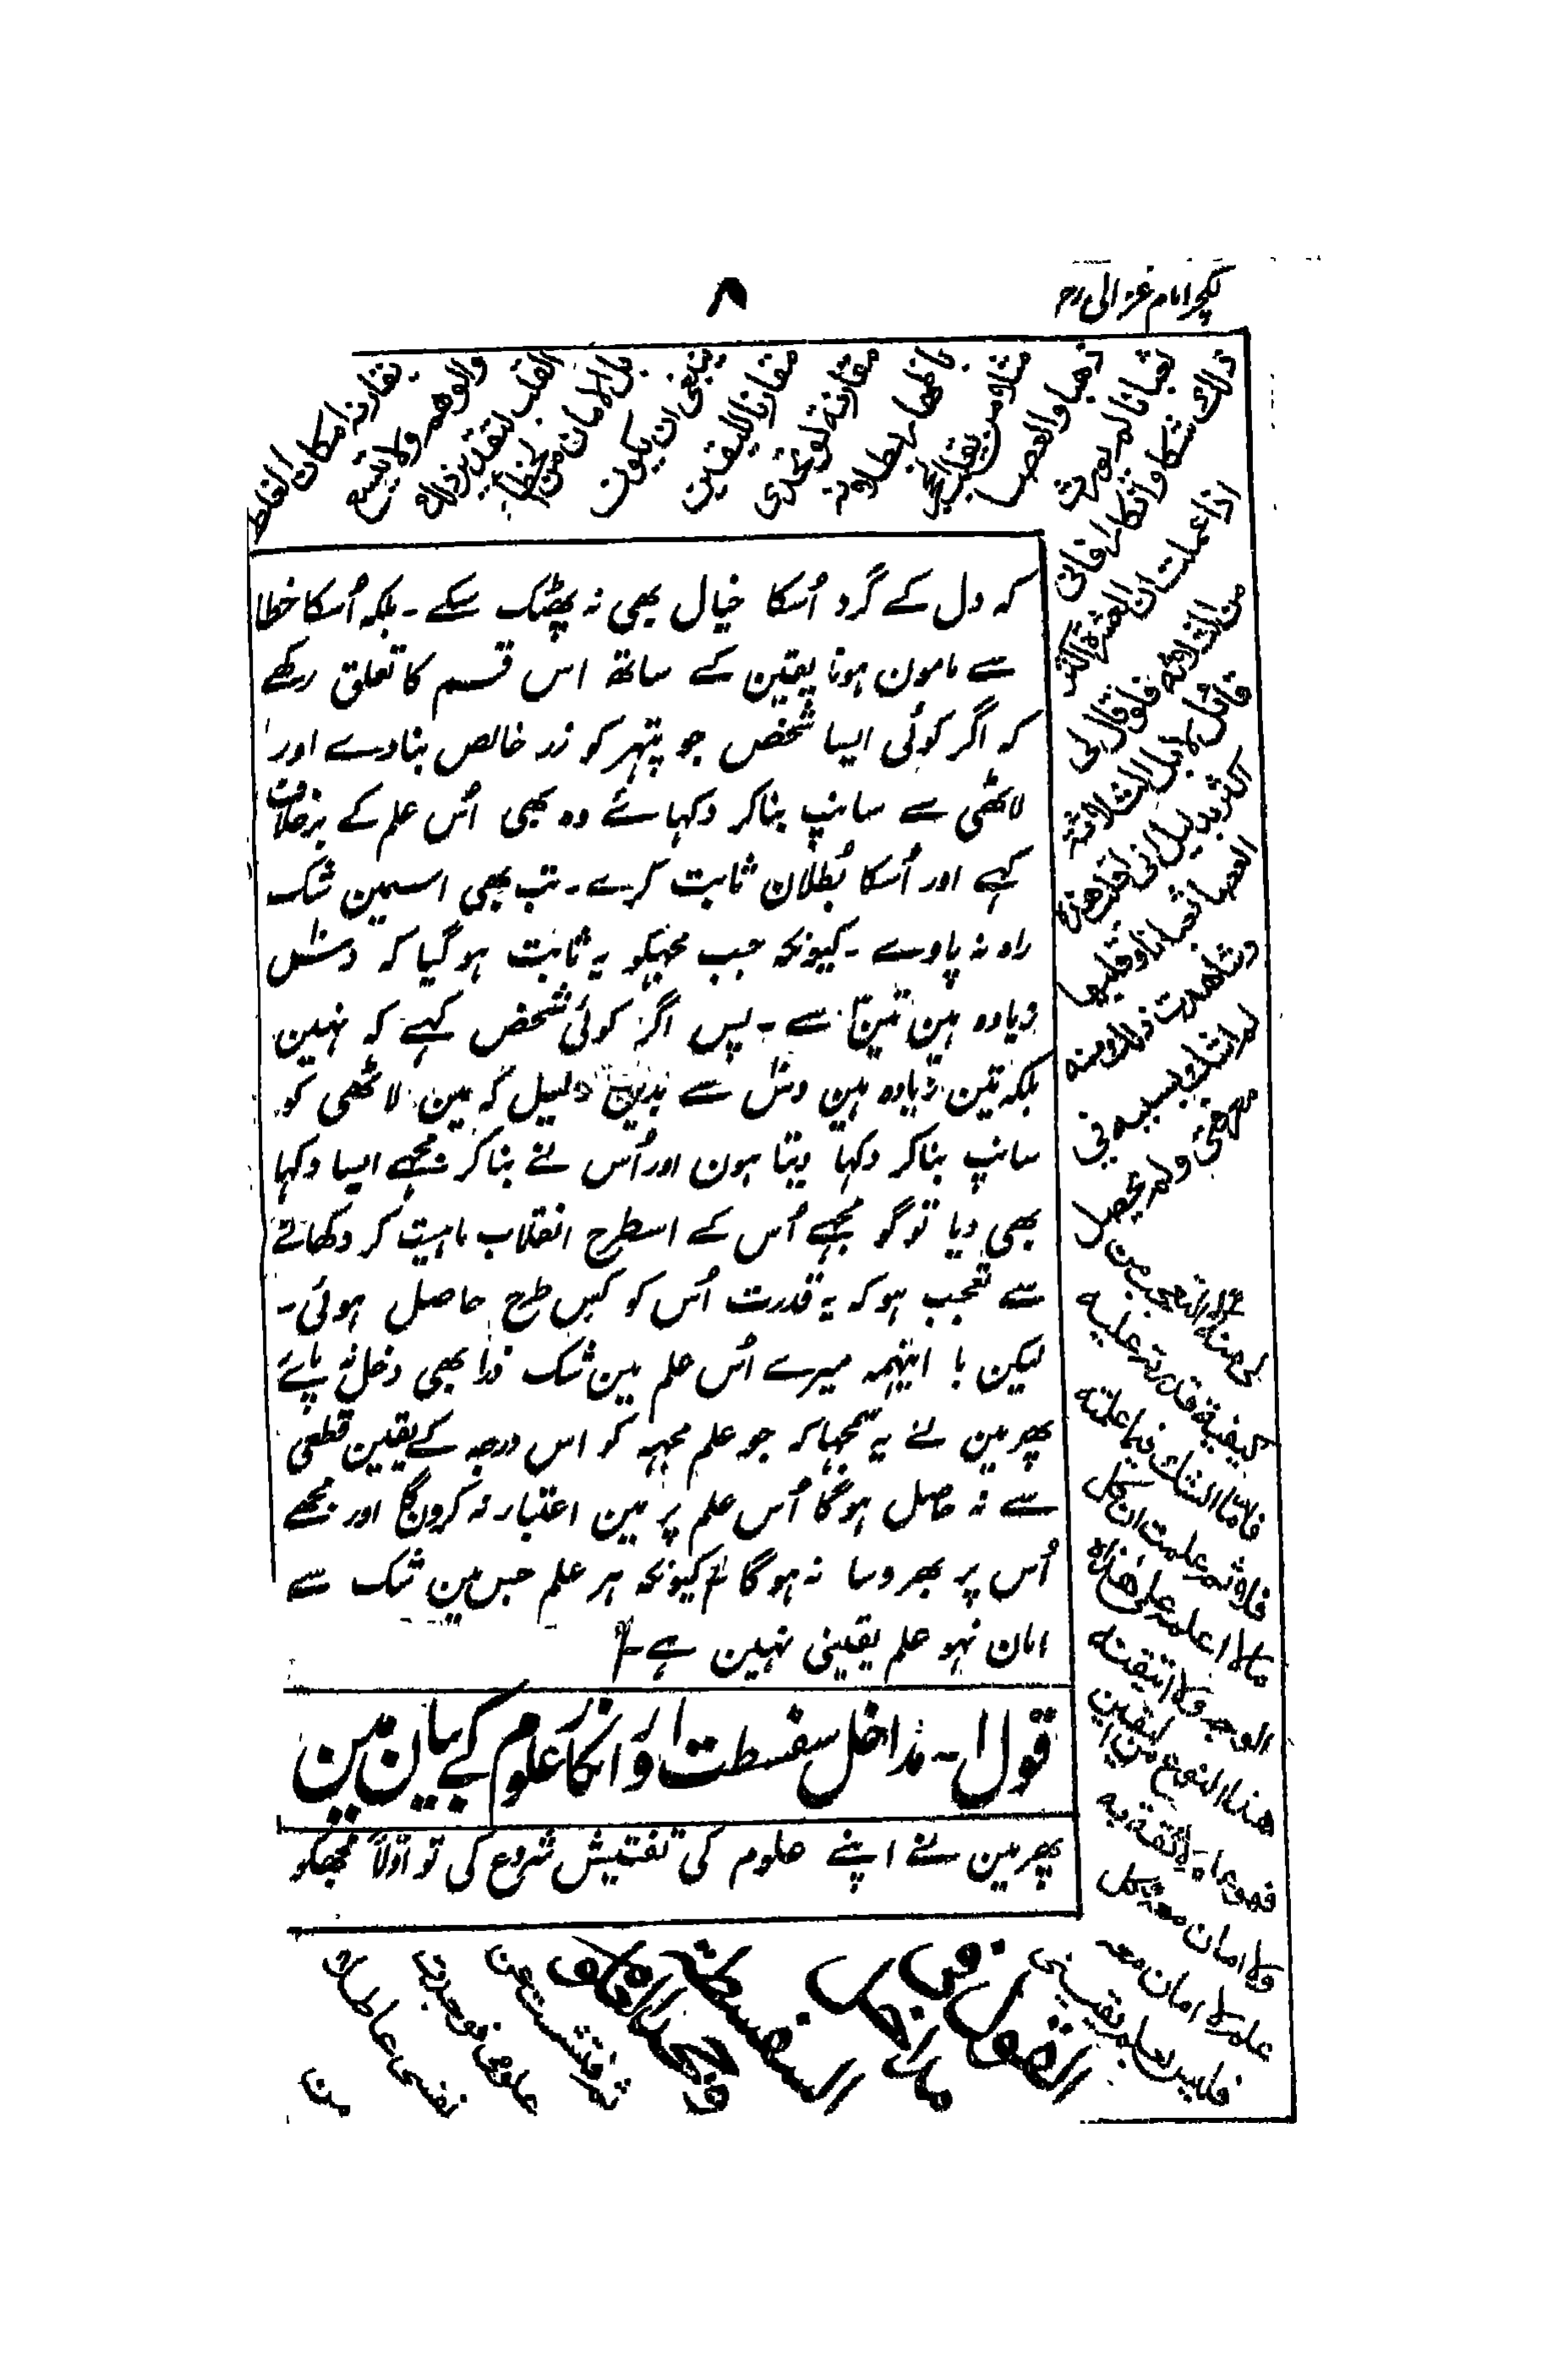 لکچر امام غزالی رح
۸
کہ دل کے گرد اُسکا خیال بھی نہ پھٹک سکے۔ بلکہ اُسکا خطا
سے مامون ہونا یقین کے ساتھ اس قسم کا تعلق رکھے
کہ اگر کوئی ایسا شخص جو پتہر کو زر خالص بنادے اور
لاٹھی سے سانپ بناکر دکہائے وہ بھی اُس علم کے برخلاف
کہے اور اُسکا بُطلان ثابت کرے۔ تب بھی اسمین شک
راہ نہ پاوے۔ کیونکہ جب مجہکو یہ ثابت ہوگیا کہ دسٰل
زیادہ ہین تین سے۔ پس اگر کوئی شخص کہے کہ نہین
بلکہ تین زیادہ ہین دس سے بدین دلیل کہ مین لاٹھی کو
سانپ بناکر دکہا دیتا ہون اور اُس نے بناکر مجہے ایسا دکہا
بھی دیا تو گو مجہے اُس کے اسطرح انقلاب ماہیت کر دکھانے
سے تعجب ہو کہ یہ قدرت اُس کو کس طرح حاصل ہوئی۔
لیکن با اینہمہ میرے اُس علم مین شک ذرا بھی دخل نہ پائے
پھر مین نے یہ سمجہا کہ جو علم مجہہ کو اس درجہ کے یقین قطعی
سے نہ حاصل ہوگا اُس علم پر مین اعتبار نہ کرون گا اور مجھے
اُس پر بھروسا نہ ہوگا کیونکہ ہر علم جس مین شک سے
امان نہو علم یقینی نہین ہے۔
قول ا۔ مداخل سفسطت اور انکار علوم کے بیان مین
پھر مین نے اپنے علوم کی تفتیش شروع کی تو اوّلاً مجھکو
یقارنہ امکان الغلط
والوهم ولا یتسع
القلب لتقدیر ذلك
بل الامان من الخطأ
ینبغی ان یکون
مقارنا للیقین
مقارنة لو تحدی
باظهار بطلانہ
مثلا من یقلب الحجر
ذهبا والعصا
ثعبانا لم یورث
ذلك شکا وانکارا فانی
اذا علمت ان العشرة اکثر
من الثلاثة فلو قال لی
قائل لا بل الثلاثة
اکثر بدلیل انی اقلب هذه
العصا ثعبانا وقلبها
وشاهدت ذلك منہ
لم اشك بسببہ فی
معرفتی ولم یحصل
لی منہ الا التعجب من
کیفیة قدرتہ علیہ
فاما الشك فیما علمتہ
فلا ثم علمت ان کل
مالا اعلمہ علی هذا
الوجہ ولا اتیقنہ
هذا النوع من الیقین
فهو علم لا ثقة بہ
ولا امان معہ وکل
علم لا امان معہ
فلیس بعلم یقینی
القول فی
مداخل
السفسطة
وجحد العلوم
ثم فتشت عن
علومی فوجدت
نفسی عاطلا
من